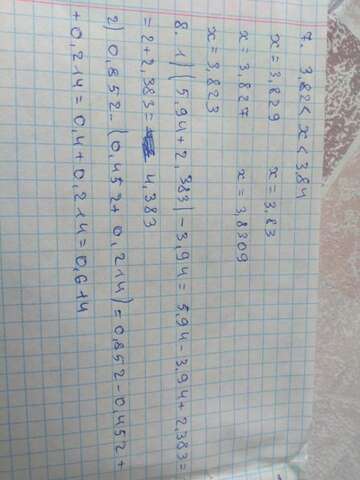 7. 3,82 < x < 3,84
x = 3,829 x = 3,83
x = 3,827 x = 3,8309
x = 3,823
8. 1) (5,94 + 2,383) - 3,94 = 5,94 - 3,94 + 2,383 =
= 2 + 2,383 = 4,383
2) 0,852 - (0,452 + 0,214) = 0,852 - 0,452 +
+ 0,214 = 0,4 + 0,214 = 0,614